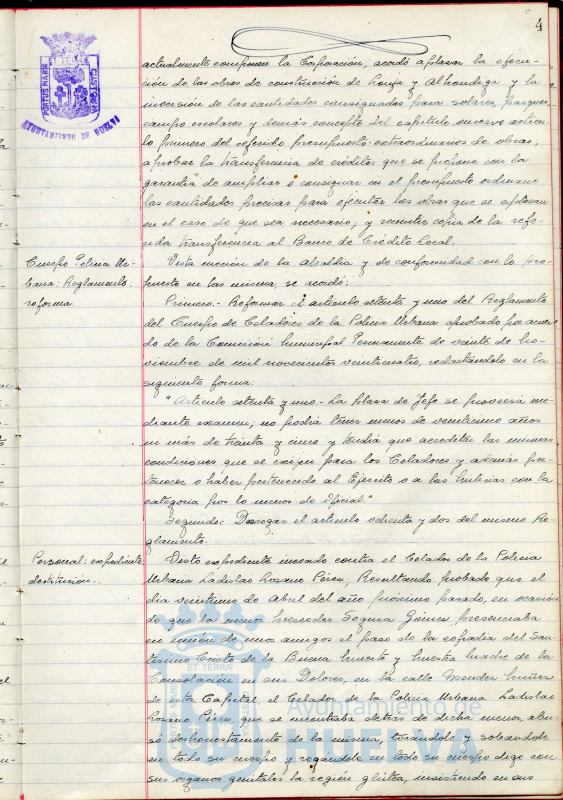 4
PORTUS MARIS
ET TERRÆ CUSTODIA
AYUNTAMIENTO DE HUELVA
actualmente componen la Corporación, acordó aplazar la ejecu-
ción de las obras de construcción de Lonja y Alhondiga y la
inversión de las cantidades consignadas para solares, parques,
campo escolares y demás conceptos del capitulo onceavo artícu-
lo primero del referido presupuesto extraordinario de obras,
aprobar la transferencia de créditos que se propone con la
garantía de ampliar o consignar en el presupuesto ordinario
las cantidades precisas para ejecutar las obras que se aplazan
en el caso de que sea necesario, y remitir copia de la refe-
rida transferencia al Banco de Crédito Local.
Cuerpo Policia Ur-
bana: Reglamento:
reforma.
Vista moción de la Alcaldia y de conformidad con lo pro-
puesto en la misma, se acordó:
Primero.- Reformar el articulo setenta y uno del Reglamento
del Cuerpo de Celadores de la Policia Urbana aprobado por acuer-
do de la Comisión Municipal Permanente de veinte de No-
viembre de mil novecientos veinticuatro, redactándolo en la
siguiente forma:
"Articulo setenta y uno.- La plaza de Jefe se proveerá me-
diante examen; no podrá tener menos de veinticinco años
ni más de treinta y cinco y tendrá que acreditar las mismas
condiciones que se exigen para los Celadores y además per-
tenecer o haber pertenecido al Ejército o a las Milicias con la
categoria por lo menos de Oficial."
Segundo: Derogar el articulo ochenta y dos del mismo Re-
glamento.
Personal: expediente
destitución.
Visto expediente incoado contra el Celador de la Policia
Urbana Ladislao Lozano Pérez, Resultando probado que el
dia veintiuno de Abril del año próximo pasado, en ocasión
de que la menor Mercedes Segura Gómez presenciaba
en unión de unos amigos el paso de la cofradia del San-
tisimo Cristo de la Buena Muerte y Nuestra Madre de la
Consolación en sus Dolores, en la calle Mendez Nuñez
de esta Capital, el Celador de la Policia Urbana Ladislao
Lozano Pérez que se encontraba detrás de dicha menor, abu-
só deshonestamente de la misma, tocándole y sobeandole
en todo su cuerpo y rozandole en todo su cuerpo digo con
sus organos genitales la región glútea, insistiendo en sus
Ayuntamiento de
HUELVA